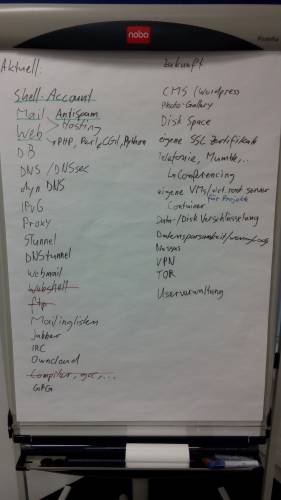 nobo
Aktuell:
Shell-Account
Mail Antispam
Web Hosting
PHP, Perl, CGI, Python
DB
DNS / DNSsec
dyn DNS
IPv6
Proxy
STunnel
DNStunnel
Webmail
Webshell
ftp
Mailinglisten
Jabber
IRC
Owncloud
Compiler, gcc, ...
GPG
Zukunft
CMS / Wordpress
Photo-Gallery
Disk Space
eigene SSL Zertifikate
Telefonie, Mumble, ..
Conferencing
eigene VMs / virt. root server
für Projekte
Container
Datei-/Disk Verschlüsselung
Datensparsamkeit/
VPN
TOR
Userverwaltung